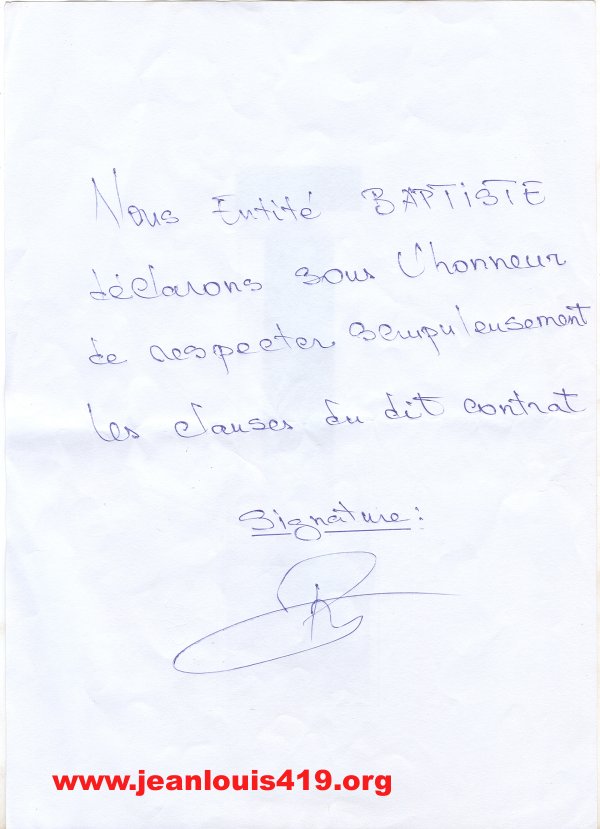 Nous Entité BAPTISTE
déclarons sous l'honneur
de respecter scrupuleusement
les clauses du dit contrat
Signature:
www.jeanlouis419.org